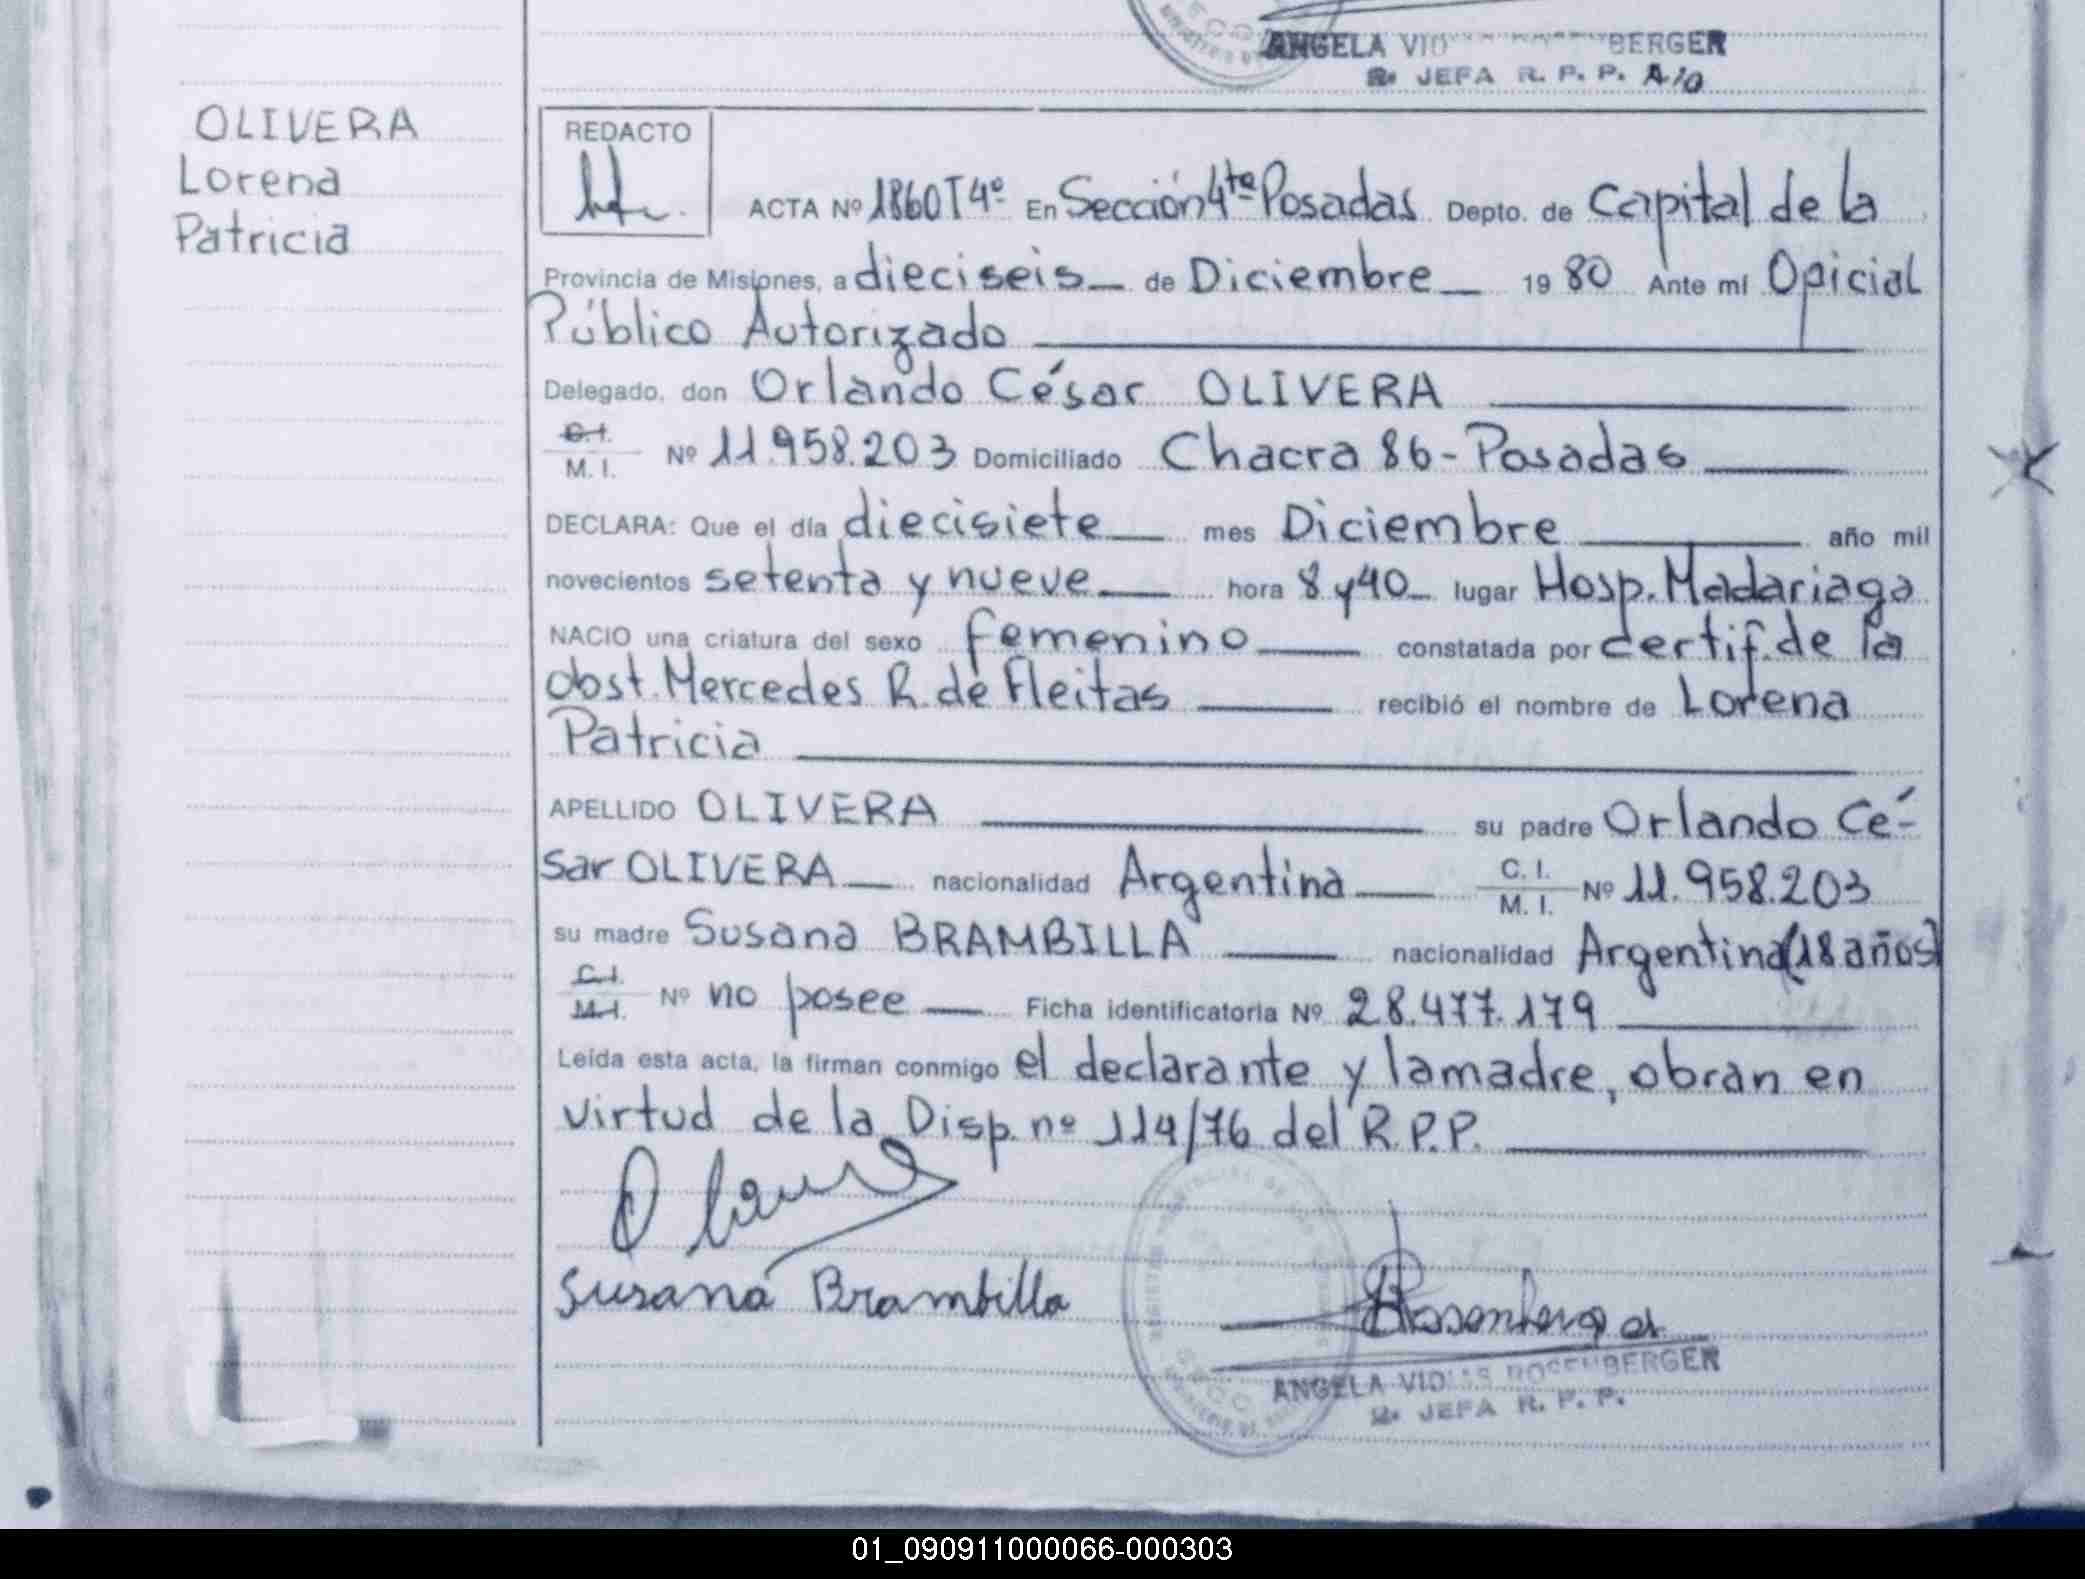 ANGELA VID BERGER
JEFA R. P. P. A/o
OLIVERA
Lorena
Patricia
REDACTO
ACTA Nº 1860T4º En Sección 4ta Posadas Depto. de Capital de la
Provincia de Misiones, a dieciseis de Diciembre 1980 Ante mí Oficial
Público Autorizado
Delegado, don Orlando César OLIVERA
C.I.
M. I. Nº 11.958.203 Domiciliado Chacra 86-Posadas
DECLARA: Que el día diecisiete mes Diciembre año mil
novecientos setenta y nueve hora 8 y 40 lugar Hosp. Madariaga
NACIO una criatura del sexo femenino constatada por certif. de la
obst. Mercedes R. de Fleitas recibió el nombre de Lorena
Patricia
APELLIDO OLIVERA su padre Orlando Cé-
sar OLIVERA nacionalidad Argentina C. I.
M. I. Nº 11.958.203
su madre Susana BRAMBILLA nacionalidad Argentina (18 años)
C.I.
M.I. Nº no posee Ficha identificatoria Nº 28.477.179
Leída esta acta, la firman conmigo el declarante y la madre, obran en
virtud de la Disp. nº 114/76 del R.P.P.
Susana Brambilla
Rosenberger
ANGELA VID ROSENBERGER
JEFA R. P. P.
01_090911000066-000303